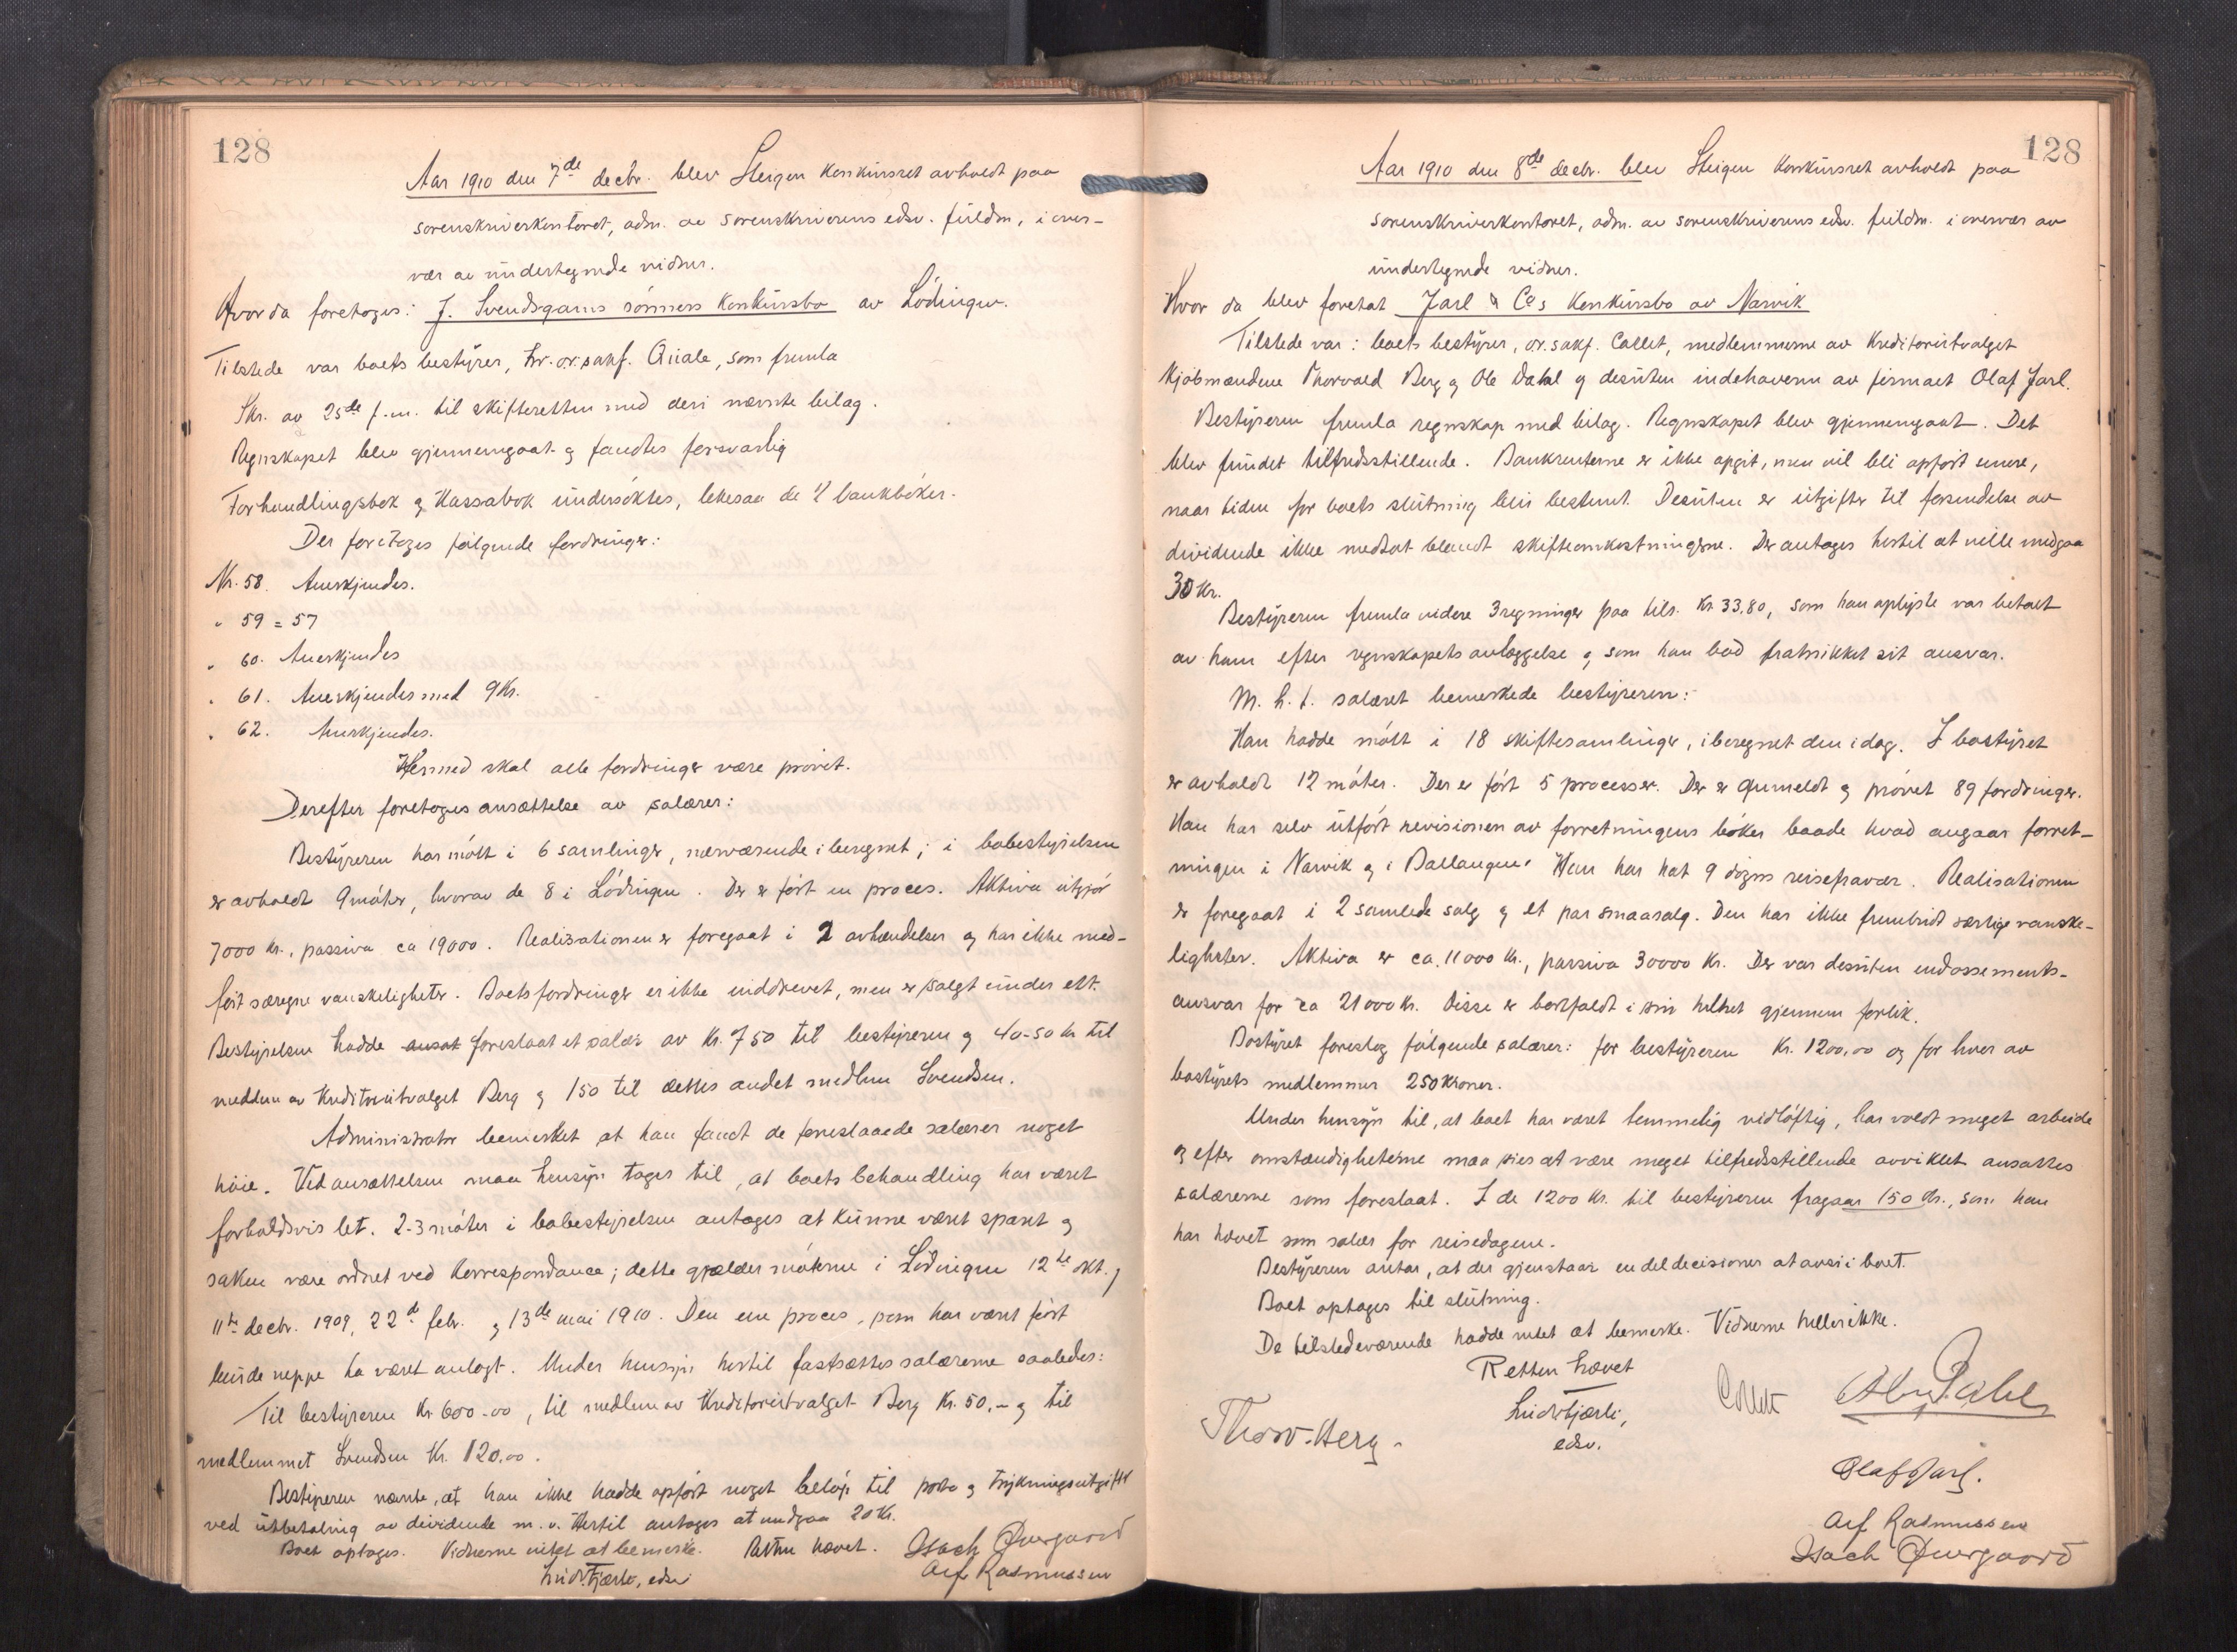 128
Aar 1910 den 7de decbr. blev Steigen konkursret avholdt paa
sorenskriverkontoret, adm. av sorenskriverens edsv. fuldm., i over-
vær av undertegnede vidner.
Hvor da foretoges: J. Svendsgams sønners konkursbo av Lødingen.
Tilstede var boets bestyrer, hr. o.r.sakf. Qviale, som fremla
Skr. av 25de f.m. til skifteretten med deri nævnte bilag.
Regnskapet blev gjennemgaat og fandtes forsvarlig
Forhandlingsbok og Kassabok undersøktes, likesaa de 2 bankbøker.
Der foretoges følgende fordringer:
Nr. 58. Anerkjendes.
" 59 = 57
" 60. Anerkjendes
" 61. Anerkjendes med 9 Kr.
" 62. Anerkjendes.
Hermed skal alle fordringer være prøvet.
Derefter foretoges ansættelse av salærer:
Bestyreren har møtt i 6 samlinger, nærværende iberegnet; i bobestyrelsen
er avholdt 9 møter, hvorav de 8 i Lødingen. Der er ført en proces. Aktiva utgjør
7000 kr., passiva ca 19000. Realisationen er foregaat i 2 avhændelser og har ikke med-
ført særegne vanskeligheter. Boets fordringer er ikke inddrevet, men er solgt under ett.
Bestyrelsen hadde ansat foreslaat et salær av kr. 750 til bestyreren og 40-50 kr til
medlem av Kreditorutvalget Berg og 150 til dettes andet medlem Svendsen.
Administrator bemerket at han fandt de foreslaaede salærer noget
høie. Ved ansættelsen maa hensyn tages til, at boets behandling har været
forholdsvis let. 2-3 møter i bobestyrelsen antages at kunne været sparet og
saken være ordnet ved korrespondance; dette gjælder møterne i Lødingen 12te okt. og
11te decbr. 1909, 22de febr. og 13de mai 1910. Den ene proces, som har været ført
burde neppe ha været anlagt. Under hensyn hertil fastsættes salærerne saaledes:
Til bestyreren Kr 600-00, til medlem av Kreditorutvalget Berg Kr. 50.- og til
medlemmet Svendsen Kr. 120.00.
Bestyreren nævnte, at han ikke hadde opført noget beløp til porto og trykningsutgifter
ved utbetaling av dividende m.v. Hertil antages at medgaa 20 Kr.
Boet optages. Vidnerne intet at bemerke. Retten hævet. Isach Overgaard
edsv. Alf Rasmussen
128
Aar 1910 den 8de decbr. blev Steigen konkursret avholdt paa
sorenskriverkontoret, adm. av sorenskriverens edsv. fuldm. i overvær av
undertegnede vidner.
Hvor da blev foretat Jarl & Co.s konkursbo av Narvik
Tilstede var: boets bestyrer, o.r.sakf. Collet, medlemmerne av Kreditorutvalget
kjøbmændene Thorvald Berg og Ole Dahl og desuten indehaveren av firmaet Olaf Jarl.
Bestyreren fremla regnskap med bilag. Regnskapet blev gjennemgaat. Det
blev fundet tilfredsstillende. Bankrenterne er ikke opgit, men vil bli opført senere,
naar tiden for boets slutning blir bestemt. Desuten er utgifter til forsendelse av
dividende ikke medtat blandt skifteomkostningerne. Der antages hertil at ville medgaa
30 Kr.
Bestyreren fremla videre 3 regninger paa tils. Kr 33.80, som han oplyste var betalt
av ham efter regnskapets avlæggelse og som han bad fratrukket sit ansvar.
M.h.t. salæret bemerkede bestyreren:
Han hadde møtt i 18 skiftesamlinger, iberegnet den idag. I bostyret
er avholdt 12 møter. Der er ført 5 processer. Der er anmeldt og prøvet 89 fordringer.
Han har selv utført revisionen av forretningens bøker baade hvad angaar forret-
ningen i Narvik og i Ballangen. Han har hat 9 døgns reisefravær. Realisationen
er foregaat i 2 samlede salg og et par smaasalg. Den har ikke frembudt særlige vanske-
ligheter. Aktiva er ca. 11000 kr., passiva 30000 Kr. Der var desuten endossements-
ansvar for ca 21000 kr. Disse er bortfaldt i sin helhet gjennem forlik.
Bostyret foreslog følgende salærer: for bestyreren Kr. 1200.00 og for hver av
bostyrets medlemmer 250 Kroner.
Under hensyn til, at boet har været temmelig vidløftig, har voldt meget arbeide
og efter omstændigheterne maa sies at være meget tilfredsstillende avviklet ansattes
salærerne som foreslaat. I de 1200 Kr. til bestyreren fragaar 150 Kr., som han
har hævet som salær for reisedagene.
Bestyreren antar, at der gjenstaar en del decisioner at avsi i boet.
Boet optages til slutning.
De tilstedeværende hadde intet at bemerke. Vidnerne heller ikke.
Retten hævet
edsv.
Thorv. Berg. Collett Ole Dahl
Olaf Jarl.
Alf Rasmussen
Isach Overgaard